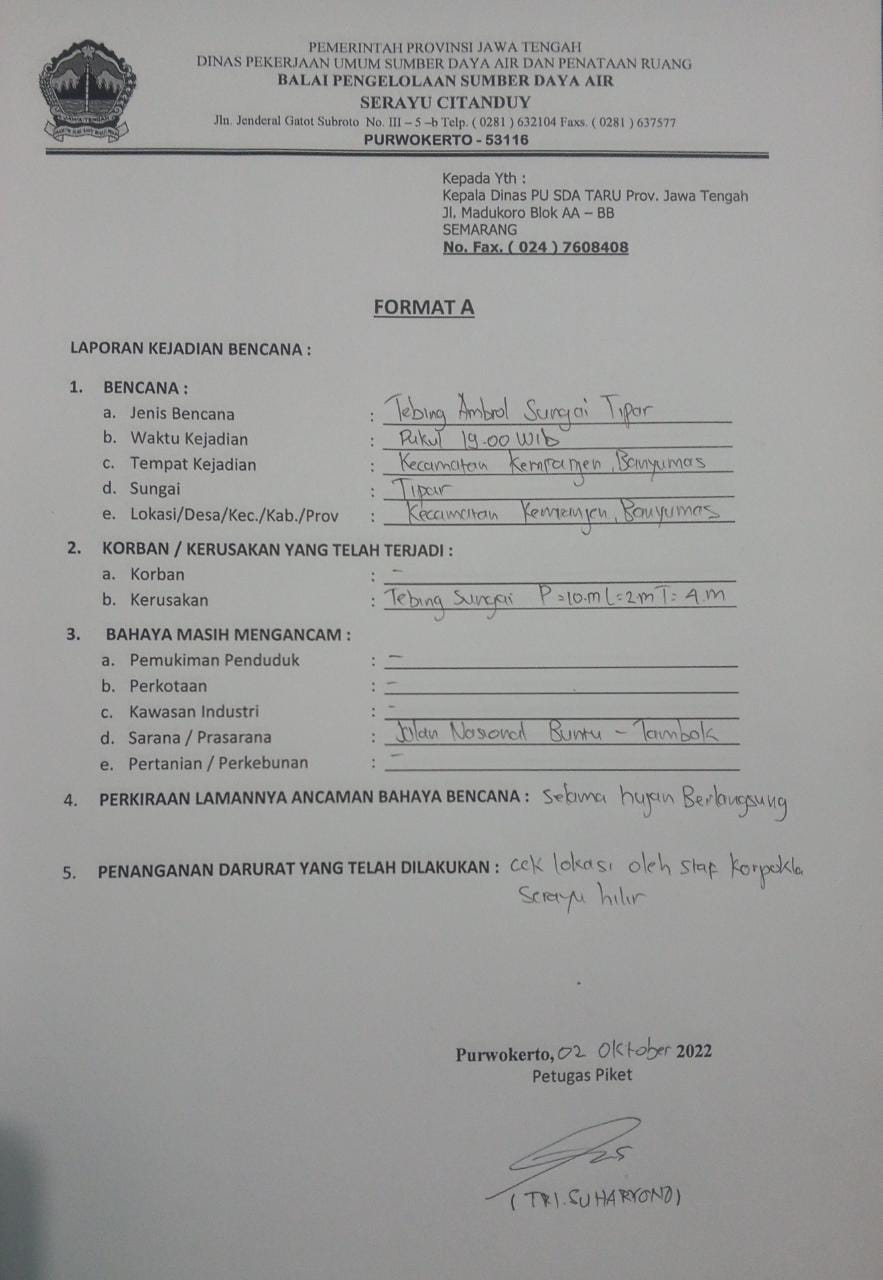 PEMERINTAH PROVINSI JAWA TENGAH
DINAS PEKERJAAN UMUM SUMBER DAYA AIR DAN PENATAAN RUANG
BALAI PENGELOLAAN SUMBER DAYA AIR
SERAYU CITANDUY
Jln. Jenderal Gatot Subroto No. III – 5 –b Telp. ( 0281 ) 632104 Faxs. ( 0281 ) 637577
PURWOKERTO - 53116
Kepada Yth :
Kepala Dinas PU SDA TARU Prov. Jawa Tengah
Jl. Madukoro Blok AA – BB
SEMARANG
No. Fax. ( 024 ) 7608408
FORMAT A
LAPORAN KEJADIAN BENCANA :
1. BENCANA :
a. Jenis Bencana : Tebing Ambrol Sungai Tipar
b. Waktu Kejadian : Pukul 19.00 Wib
c. Tempat Kejadian : Kecamatan Kemranjen, Banyumas
d. Sungai : Tipar
e. Lokasi/Desa/Kec./Kab./Prov : Kecamatan Kemranjen, Banyumas
2. KORBAN / KERUSAKAN YANG TELAH TERJADI :
a. Korban : -
b. Kerusakan : Tebing Sungai P=10.m L=2m T= 4.m
3. BAHAYA MASIH MENGANCAM :
a. Pemukiman Penduduk : -
b. Perkotaan : -
c. Kawasan Industri : -
d. Sarana / Prasarana : Jalan Nasional Buntu - Tambak
e. Pertanian / Perkebunan : -
4. PERKIRAAN LAMANNYA ANCAMAN BAHAYA BENCANA : Selama hujan Berlangsung
5. PENANGANAN DARURAT YANG TELAH DILAKUKAN : cek lokasi oleh staf Korpokla
Serayu hilir
Purwokerto, 02 Oktober 2022
Petugas Piket
( TRI.SUHARYONO)